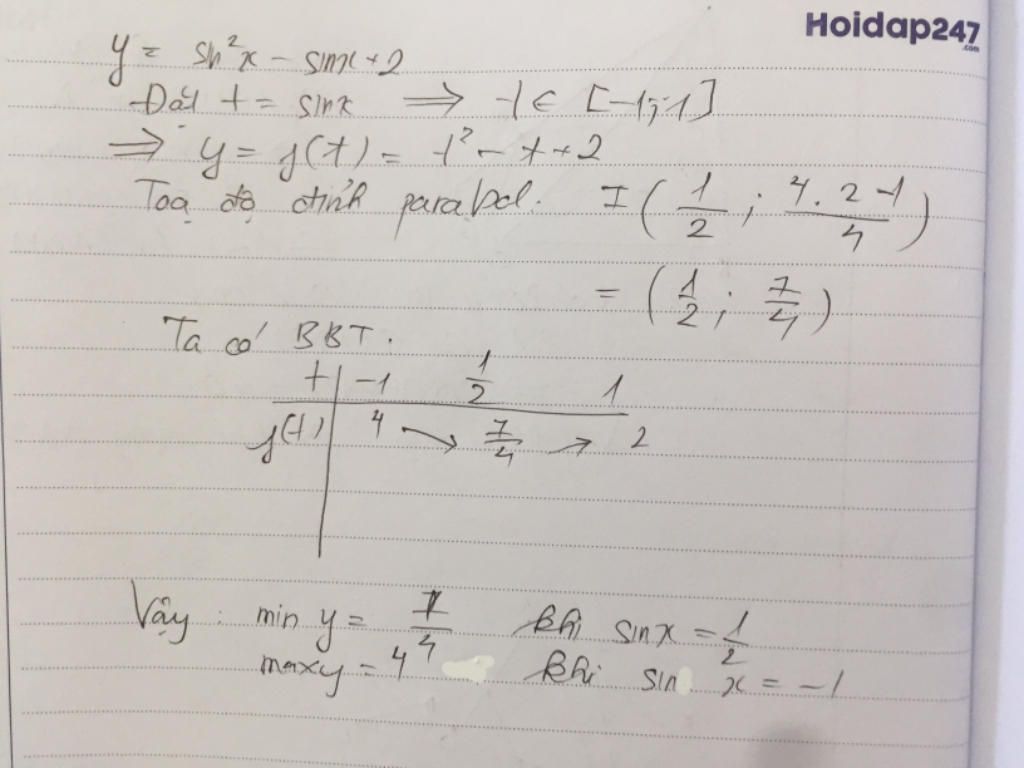 Hoidap247
.com
y = sin²x - sinx + 2
Đặt t = sinx ⇒ t ∈ [-1; 1]
⇒ y = f(t) = t² - t + 2
Toạ độ đỉnh parabol. I (1/2 ; (4.2-1)/4)
= (1/2 ; 7/4)
Ta có BBT.
t | -1 1/2 1
f(t) | 4 ↘ 7/4 ↗ 2
Vậy : min y = 7/4 khi sinx = 1/2
max y = 4 khi sin x = -1